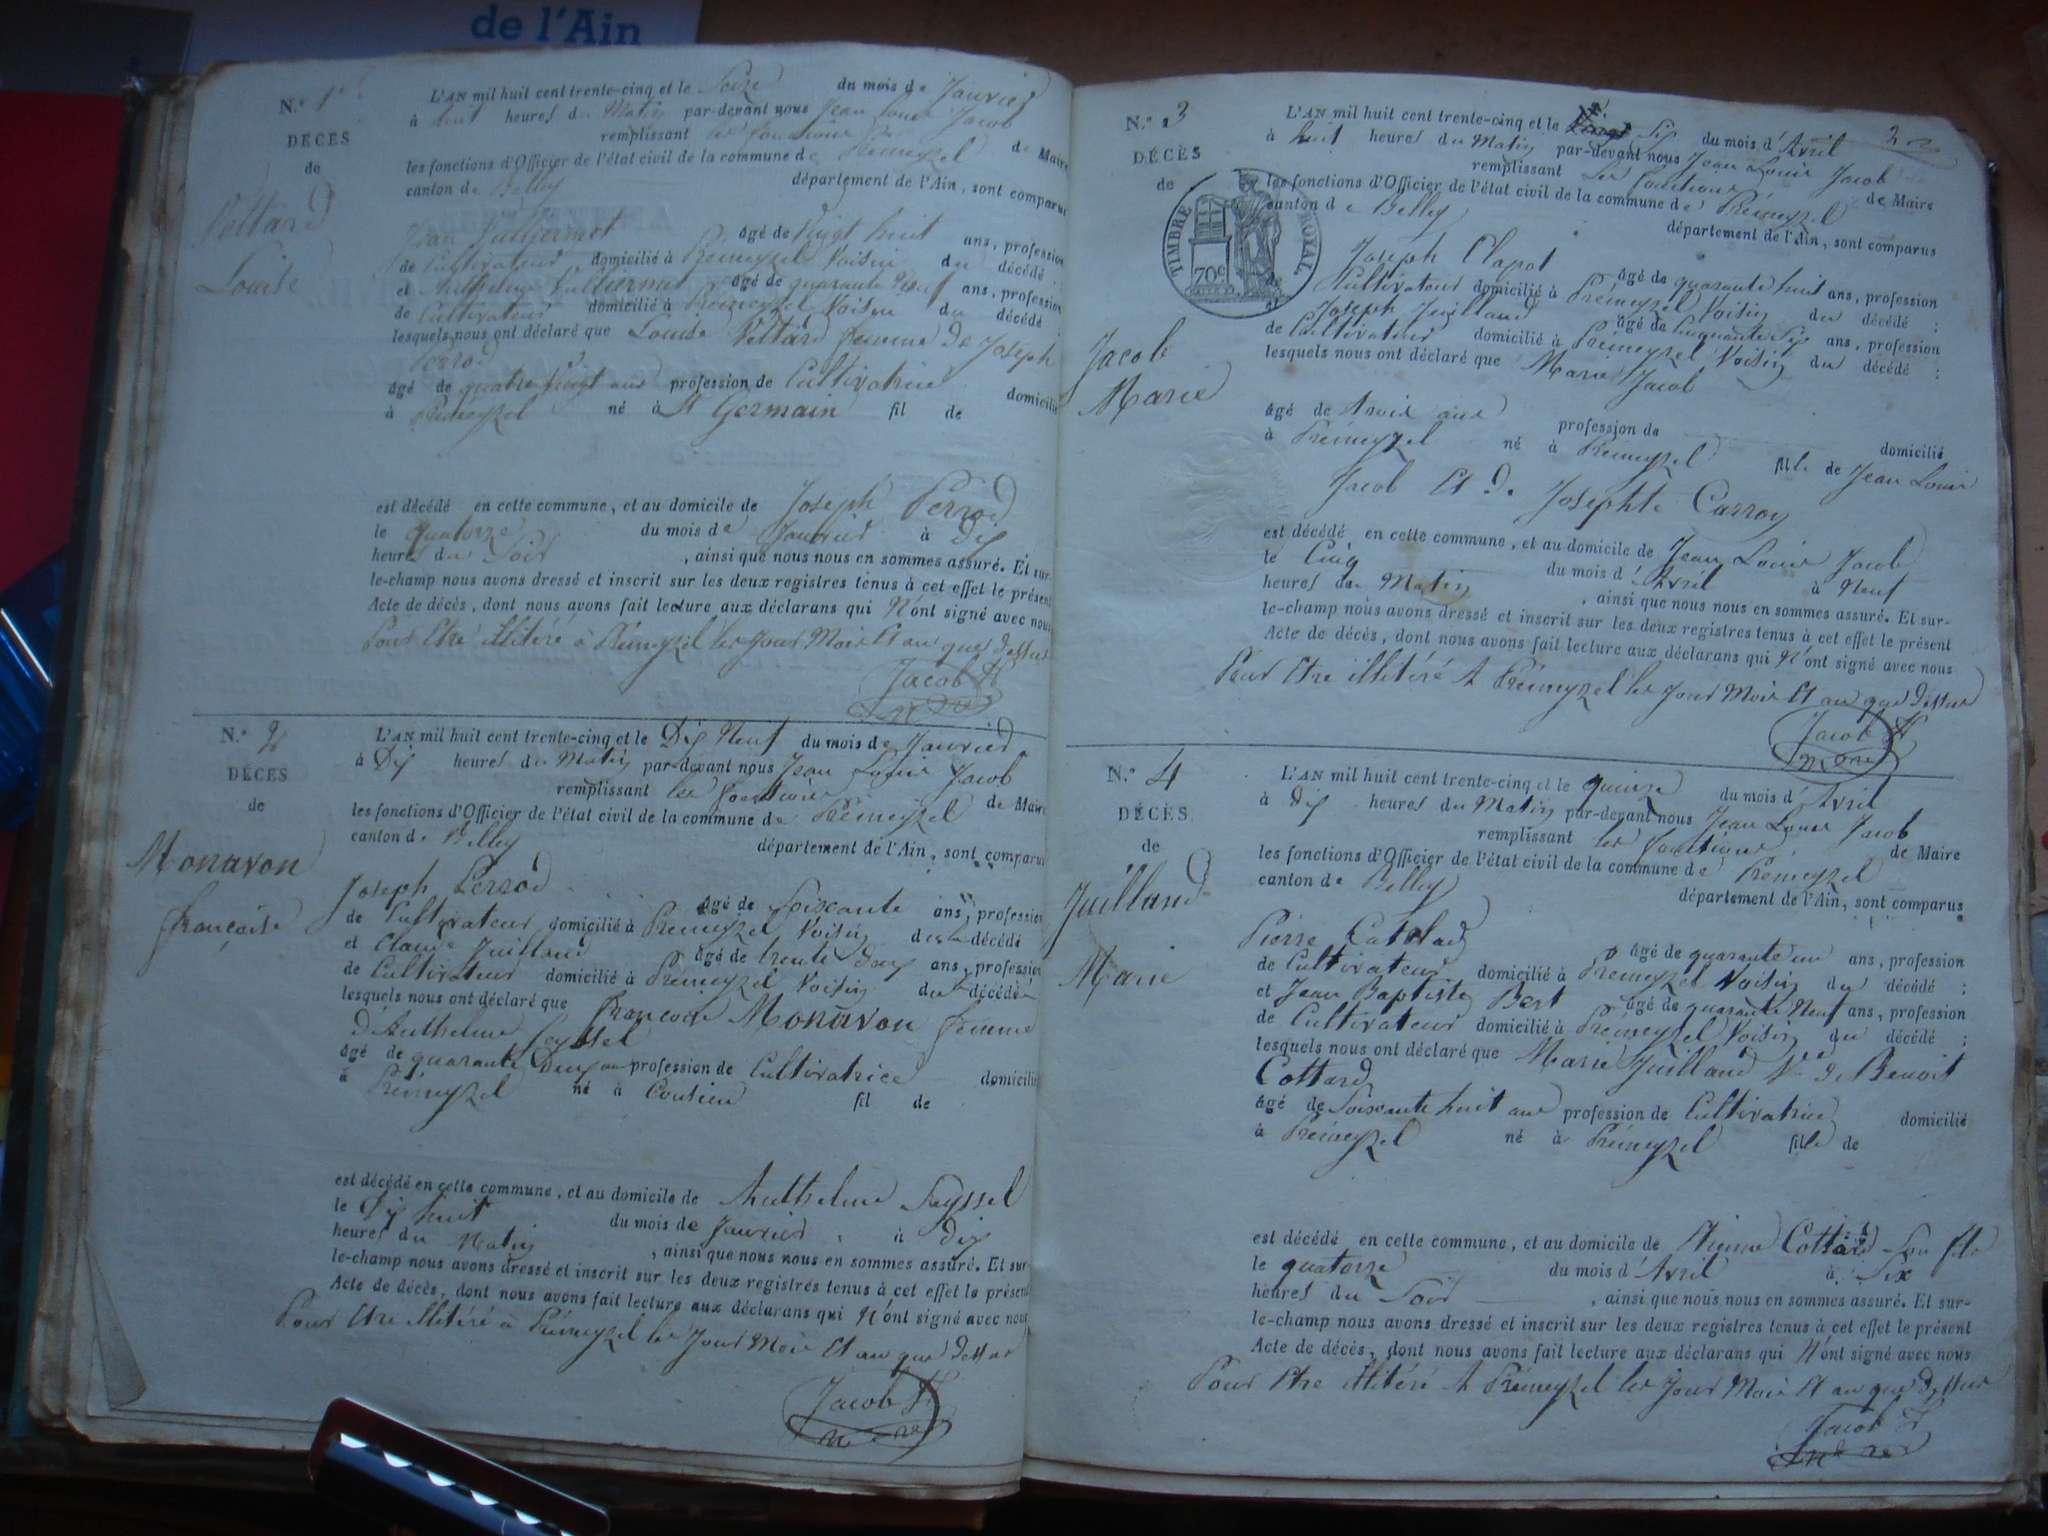 de l'Ain
N.° 1er
DÉCÈS
de
Pettard
Louise
L'AN mil huit cent trente-cinq et le Seize du mois de Janvier
à huit heures du Matin par-devant nous Jean Louis Jacob
remplissant les fonctions de Maire
les fonctions d'Officier de l'état civil de la commune de Prémeyzel
canton de Belley département de l'Ain, sont comparus
Jean Jullieret âgé de Vingt huit ans, profession
de Cultivateur domicilié à Prémeyzel Voisin du décédé ;
et Anthelme âgé de quarante Neuf ans, profession
de Cultivateur domicilié à Prémeyzel Voisin du décédé ;
lesquels nous ont déclaré que Louise Pettard femme de Joseph
Perrod
âgé de quatre vingt ans profession de Cultivatrice domicilié
à Prémeyzel né à St Germain fil de
est décédé en cette commune, et au domicile de Joseph Perrod
le quatorze du mois de Janvier à Dix
heures du Soir , ainsi que nous nous en sommes assuré. Et sur-
le-champ nous avons dressé et inscrit sur les deux registres tenus à cet effet le présent
Acte de décès, dont nous avons fait lecture aux déclarans qui N'ont signé avec nous
Pour Etre illitéré à Prémeyzel les Jour Mois Et an que Dessus
Jacob
N.° 2
DÉCÈS
de
Monavon
françoise
L'AN mil huit cent trente-cinq et le Dix Neuf du mois de Janvier
à Dix heures du Matin par-devant nous Jean Louis Jacob
remplissant les fonctions de Maire
les fonctions d'Officier de l'état civil de la commune de Prémeyzel
canton de Belley département de l'Ain, sont comparus
Joseph Perrod âgé de Soixante ans, profession
de Cultivateur domicilié à Prémeyzel Voisin de la décédé
et Claude Juilland âgé de trente Deux ans, profession
de Cultivateur domicilié à Prémeyzel Voisin de la décédé
lesquels nous ont déclaré que françoise Monavon femme
d'Anthelme Seyssel
âgé de quarante Deux ans profession de Cultivatrice domicilié
à Prémeyzel né à Contieu fil de
est décédé en cette commune, et au domicile de Anthelme Seyssel
le Dix huit du mois de Janvier à Dix
heures du Matin , ainsi que nous nous en sommes assuré. Et sur
le-champ nous avons dressé et inscrit sur les deux registres tenus à cet effet le présent
Acte de décès, dont nous avons fait lecture aux déclarans qui N'ont signé avec nous
Pour Etre illitéré à Prémeyzel les Jour Mois Et an que Dessus
Jacob
N.° 3
DÉCÈS
de
TIMBRE ROYAL
70c
Jacob
Marie
L'AN mil huit cent trente-cinq et le Six du mois d'Avril
à huit heures du Matin par-devant nous Jean Louis Jacob
remplissant les fonctions de Maire
les fonctions d'Officier de l'état civil de la commune de Prémeyzel
canton de Belley département de l'Ain, sont comparus
Joseph Clapot âgé de quarante huit ans, profession
Cultivateur domicilié à Prémeyzel Voisin du décédé ;
Joseph Juilland âgé de Cinquante Six ans, profession
de Cultivateur domicilié à Prémeyzel Voisin du décédé ;
lesquels nous ont déclaré que Marie Jacob
âgé de trois ans profession de domicilié
à Prémeyzel né à Prémeyzel fille de Jean Louis
Jacob Et de Josephte Carroy
est décédé en cette commune, et au domicile de Jean Louis Jacob
le Cinq du mois d'Avril à Neuf
heures du Matin , ainsi que nous nous en sommes assuré. Et sur-
le-champ nous avons dressé et inscrit sur les deux registres tenus à cet effet le présent
Acte de décès, dont nous avons fait lecture aux déclarans qui N'ont signé avec nous
Pour Etre illitéré A Prémeyzel les Jour Mois Et an que Dessus
Jacob
N.° 4
DÉCÈS
de
Juilland
Marie
L'AN mil huit cent trente-cinq et le quinze du mois d'Avril
à Dix heures du Matin par-devant nous Jean Louis Jacob
remplissant les fonctions de Maire
les fonctions d'Officier de l'état civil de la commune de Prémeyzel
canton de Belley département de l'Ain, sont comparus
Pierre âgé de quarante un ans, profession
de Cultivateur domicilié à Prémeyzel Voisin du décédé ;
et Jean Baptiste Bert âgé de quarante Neuf ans, profession
de Cultivateur domicilié à Prémeyzel Voisin du décédé ;
lesquels nous ont déclaré que Marie Juilland Ve de Benoit
Cottard
âgé de Soixante huit ans profession de Cultivatrice domicilié
à Prémeyzel né à Prémeyzel fille de
est décédé en cette commune, et au domicile de Etienne Cottard Son fils
le quatorze du mois d'Avril à Six
heures du Soir , ainsi que nous nous en sommes assuré. Et sur-
le-champ nous avons dressé et inscrit sur les deux registres tenus à cet effet le présent
Acte de décès, dont nous avons fait lecture aux déclarans qui N'ont signé avec nous
Pour Etre illitéré A Prémeyzel les Jour Mois Et an que Dessus
Jacob